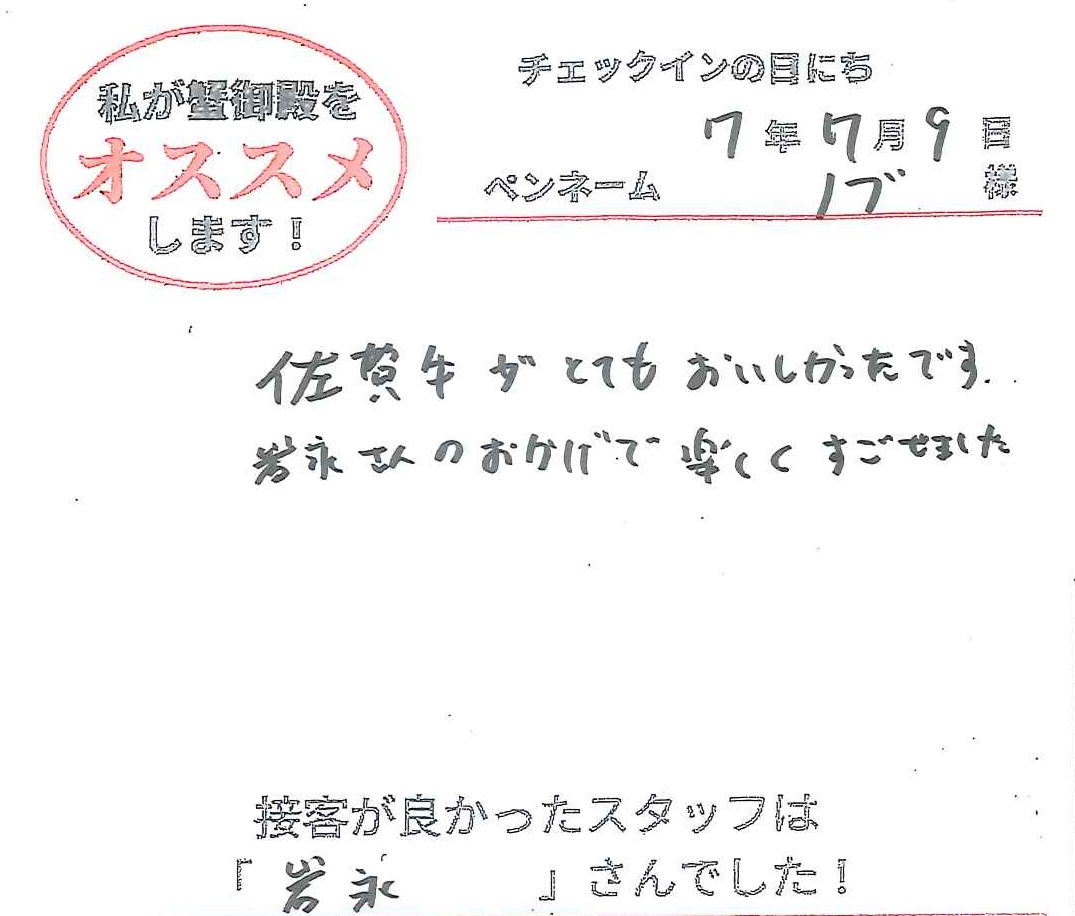 私が蟹御殿を
オススメ
します！
チェックインの日にち
7年7月9日
ペンネーム ノブ 様
佐賀牛がとてもおいしかったです.
岩永さんのおかげで楽しくすごせました
接客が良かったスタッフは
「岩永」さんでした！